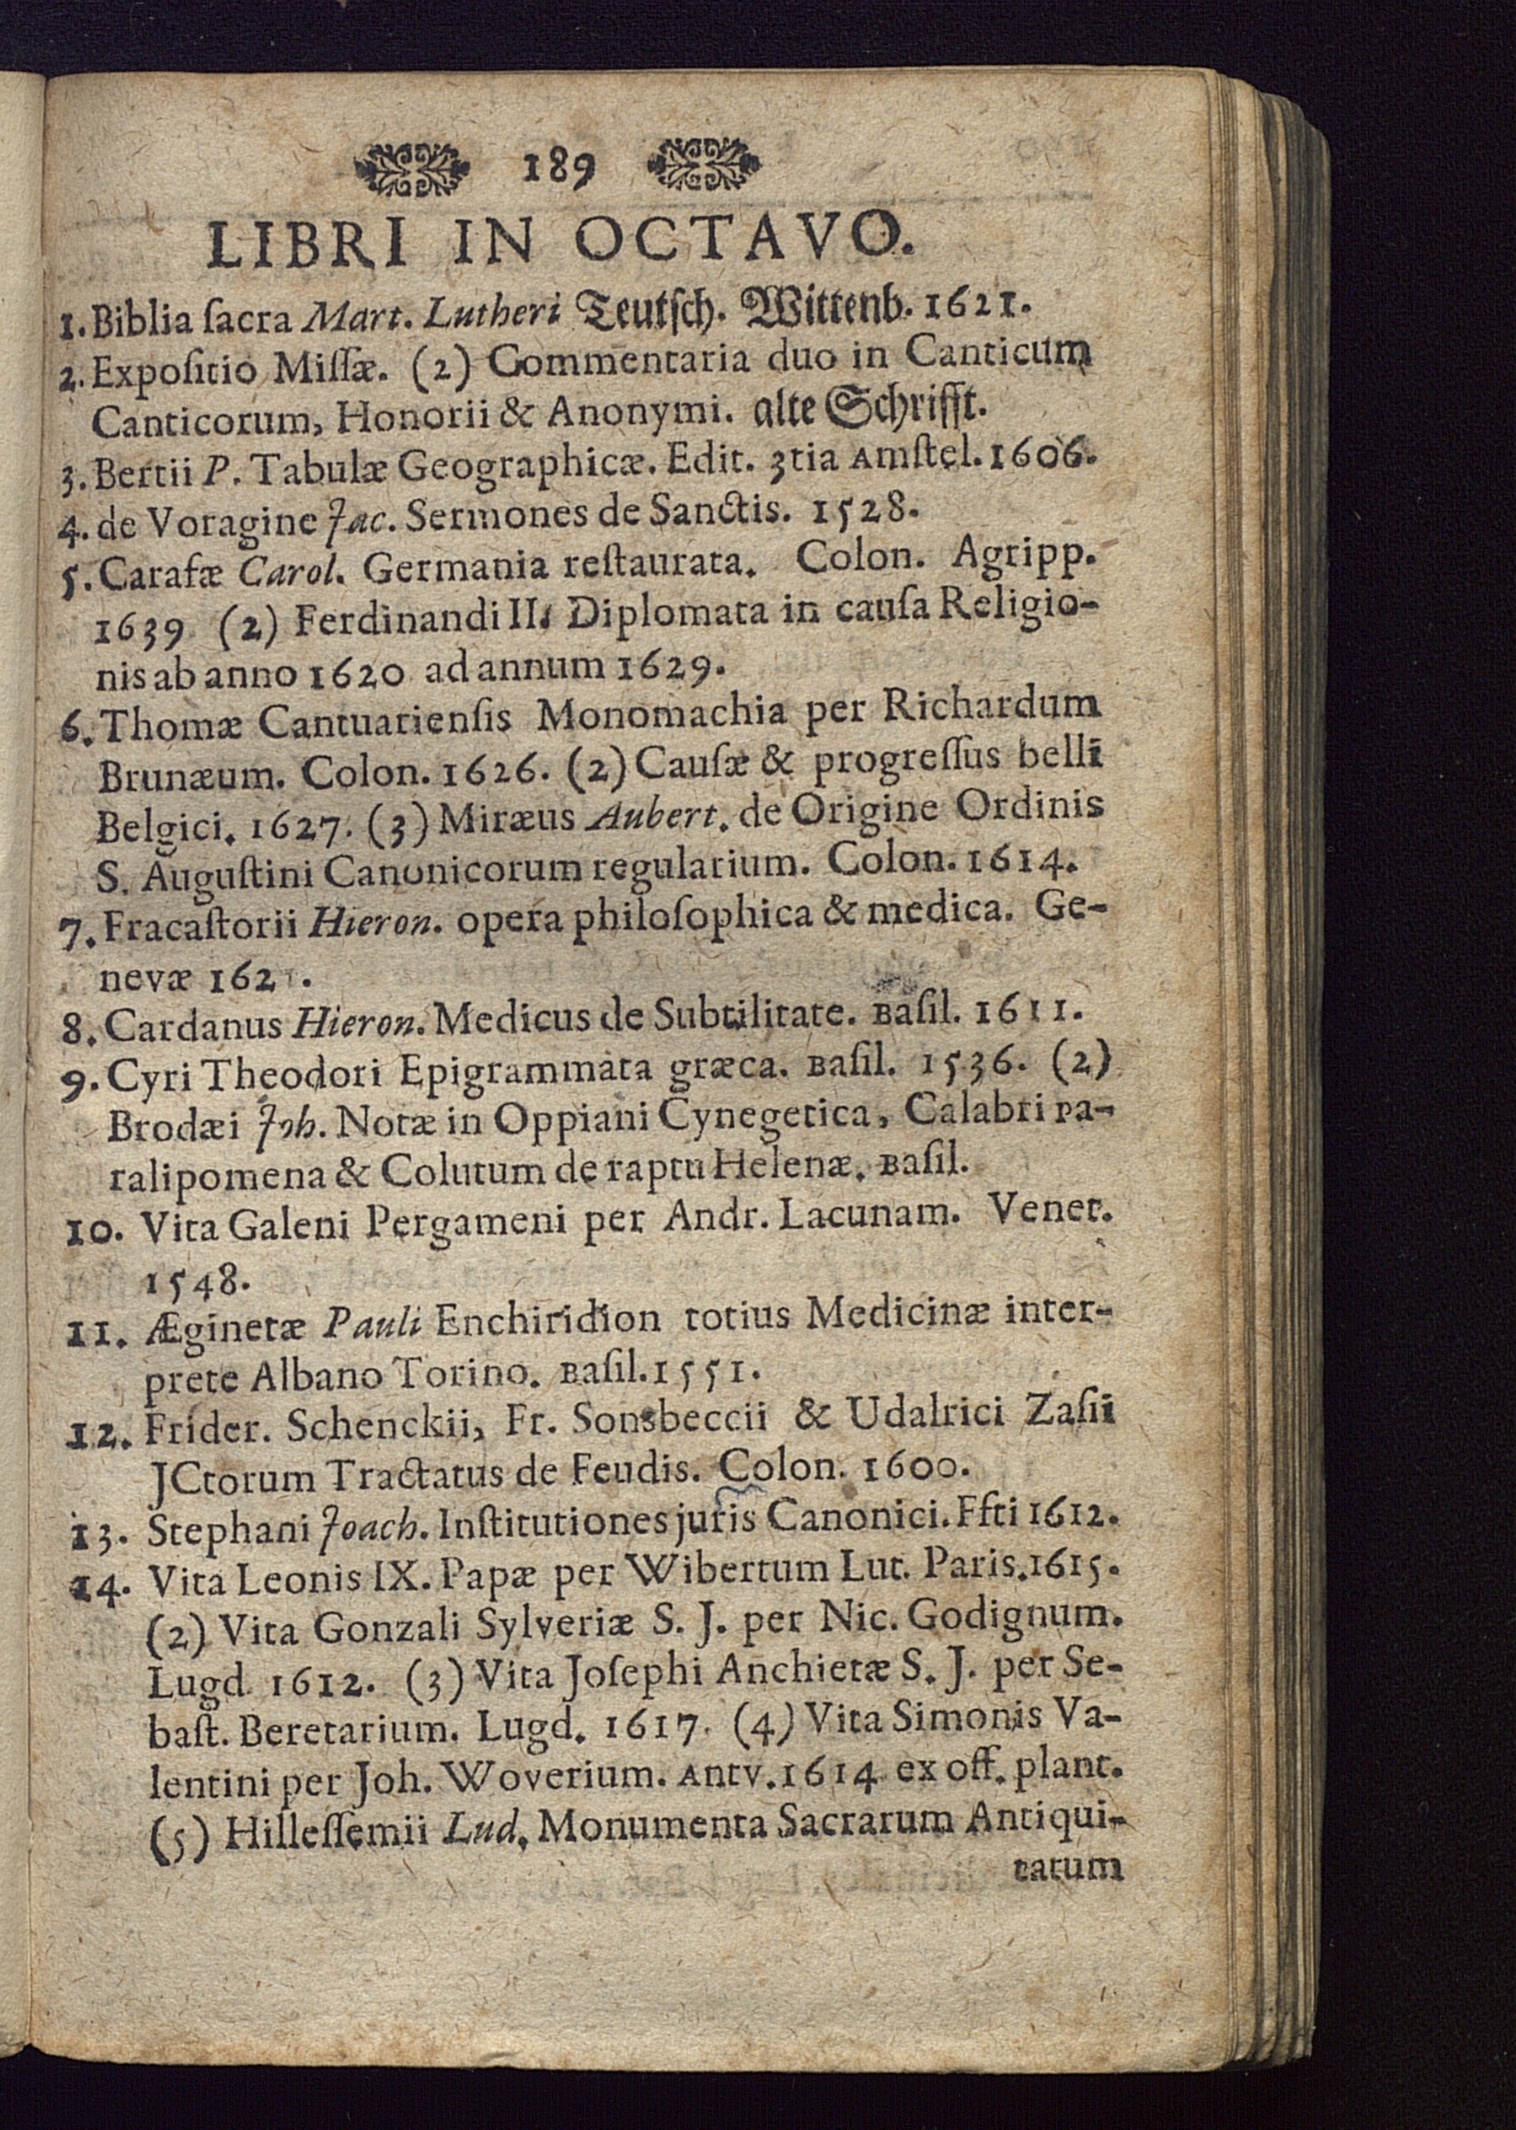 189
LIBRI IN OCTAVO.
1. Biblia ſacra Mart. Lutheri Teutſch. Wittenb. 1621.
2. Expoſitio Miſſæ. (2) Commentaria duo in Canticum
Canticorum, Honorii & Anonymi. alte Schrifft.
3. Bertii P. Tabulæ Geographicæ. Edit. 3tia Amſtel. 1606.
4. de Voragine Jac. Sermones de Sanctis. 1528.
5. Carafæ Carol. Germania reſtaurata. Colon. Agripp.
1639 (2) Ferdinandi II. Diplomata in cauſa Religio-
nis ab anno 1620 ad annum 1629.
6. Thomæ Cantuarienſis Monomachia per Richardum
Brunæum. Colon. 1626. (2) Cauſæ & progreſſus belli
Belgici. 1627. (3) Miræus Aubert. de Origine Ordinis
S. Auguſtini Canonicorum regularium. Colon. 1614.
7. Fracaſtorii Hieron. opera philoſophica & medica. Ge-
nevæ 162 .
8. Cardanus Hieron. Medicus de Subtilitate. Baſil. 1611.
9. Cyri Theodori Epigrammata græca. Baſil. 1536. (2)
Brodæi Joh. Notæ in Oppiani Cynegetica, Calabri Pa-
ralipomena & Colutum de raptu Helenæ. Baſil.
10. Vita Galeni Pergameni per Andr. Lacunam. Venet.
1548.
11. Æginetæ Pauli Enchiridion totius Medicinæ inter-
prete Albano Torino. Baſil. 1551.
12. Frider. Schenckii, Fr. Sonsbeccii & Udalrici Zaſii
JCtorum Tractatus de Feudis. Colon. 1600.
13. Stephani Joach. Inſtitutiones juris Canonici. Ffti 1612.
14. Vita Leonis IX. Papæ per Wibertum Lut. Paris. 1615.
(2) Vita Gonzali Sylveriæ S. J. per Nic. Godignum.
Lugd. 1612. (3) Vita Joſephi Anchietæ S. J. per Se-
baſt. Beretarium. Lugd. 1617. (4) Vita Simonis Va-
lentini per Joh. Woverium. Antv. 1614 ex off. plant.
(5) Hilleſſemii Lud. Monumenta Sacrarum Antiqui-
tatum